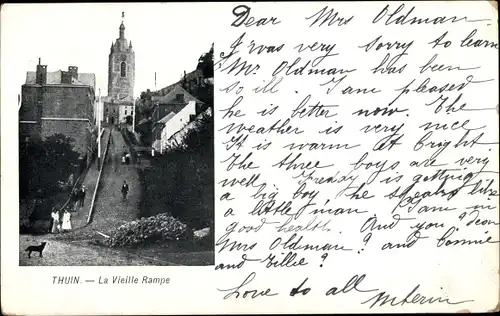 Dear Mrs Oldman
I was very sorry to learn
Mr Oldman has been
so ill. I am pleased
he is better now. The
weather is very nice
It is warm at Bright
The three boys are very
well. Freddy is getting
a big boy, he speaks like
a little man. I am in
good health. And you? dear
Mrs Oldman? and Connie
and Tillie?
Love to all
THUIN. — La Vieille Rampe